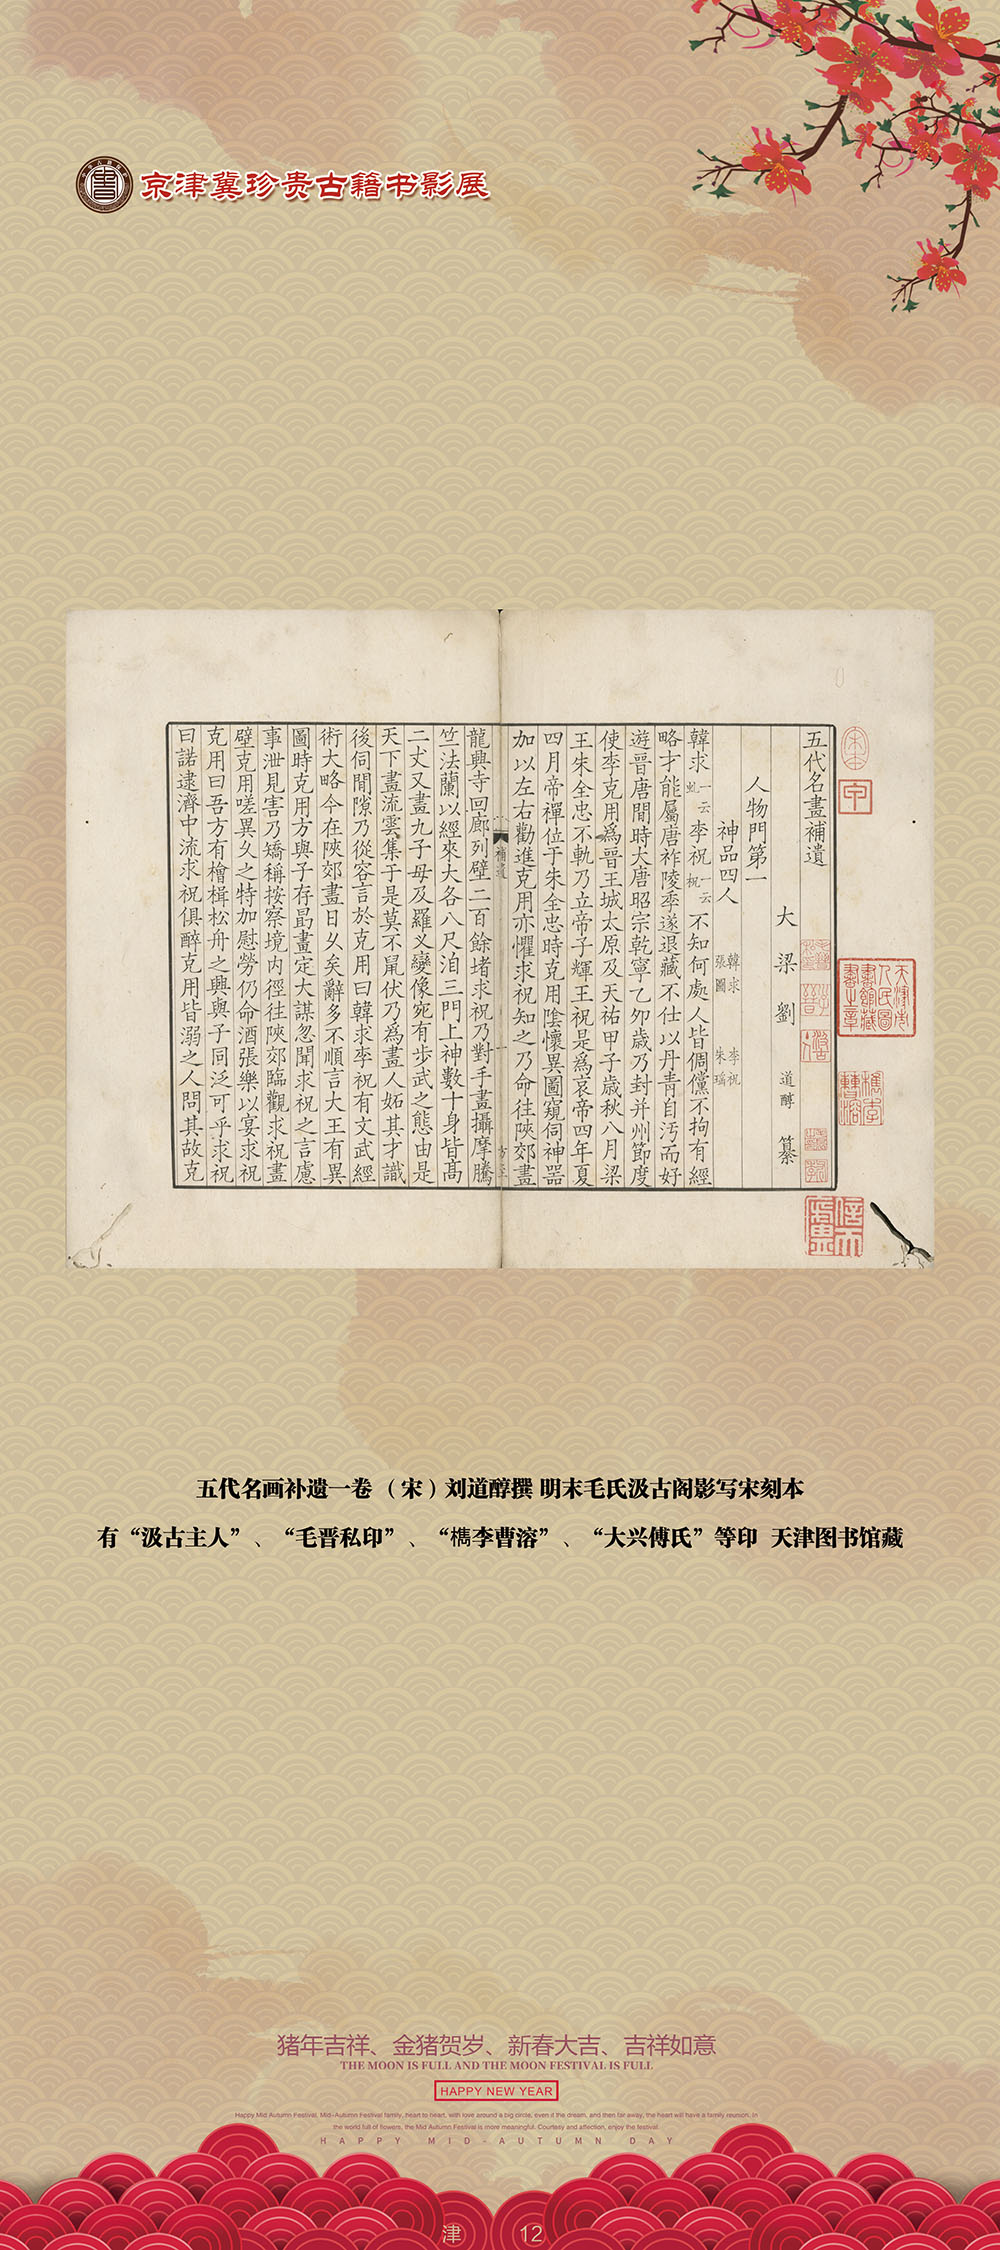 京津冀珍贵古籍书影展
五代名畫補遺
大梁劉道醇纂
人物門第一
神品四人 韓求 李祝 張圖 朱瑤
韓求一云虬李祝一云祝不知何處人皆倜儻不拘有經
略才能屬唐祚陵季遂退藏不仕以丹青自汚而好
遊晉唐間時大唐昭宗乾寧乙夘歲乃封并州節度
使李克用爲晉王城太原及天祐甲子歲秋八月梁
王朱全忠不軌乃立帝子輝王祝是爲哀帝四年夏
四月帝禪位于朱全忠時克用陰懷異圖窺伺神器
加以左右勸進克用亦懼求祝知之乃命往陝郊畫
補遺
龍興寺回廊列壁二百餘堵求祝乃對手畫攝摩騰
竺法蘭以經來大各八尺洎三門上神數十身皆高
二丈又畫九子母及羅义變像宛有步武之態由是
天下畫流雲集于是莫不鼠伏乃爲畫人妬其才識
後伺間隙乃從容言於克用曰韓求李祝有文武經
術大略今在陝郊畫日乆矣辭多不順言大王有異
圖時克用方與子存勗畫定大謀忽聞求祝之言慮
事泄見害乃矯稱按察境内徑往陝郊臨觀求祝畫
壁克用嗟異乆之特加慰勞仍命酒張樂以宴求祝
克用曰吾方有檜楫松舟之興與子同泛可乎求祝
曰諾逮濟中流求祝俱醉克用皆溺之人問其故克
天津市人民圖書館藏書之章
檇李曹溶
五代名画补遗一卷（宋）刘道醇撰 明末毛氏汲古阁影写宋刻本
有“汲古主人”、“毛晋私印”、“檇李曹溶”、“大兴傅氏”等印 天津图书馆藏
猪年吉祥、金猪贺岁、新春大吉、吉祥如意
THE MOON IS FULL AND THE MOON FESTIVAL IS FULL
HAPPY NEW YEAR
Happy Mid Autumn Festival, Mid-Autumn Festival family, heart to heart, with love around a big circle, even if the dream, and then far away, the heart will have a family reunion. In
the world full of flowers, the Mid Autumn Festival is more meaningful. Courtesy and affection, enjoy the festival.
HAPPY MID-AUTUMN DAY
津 12